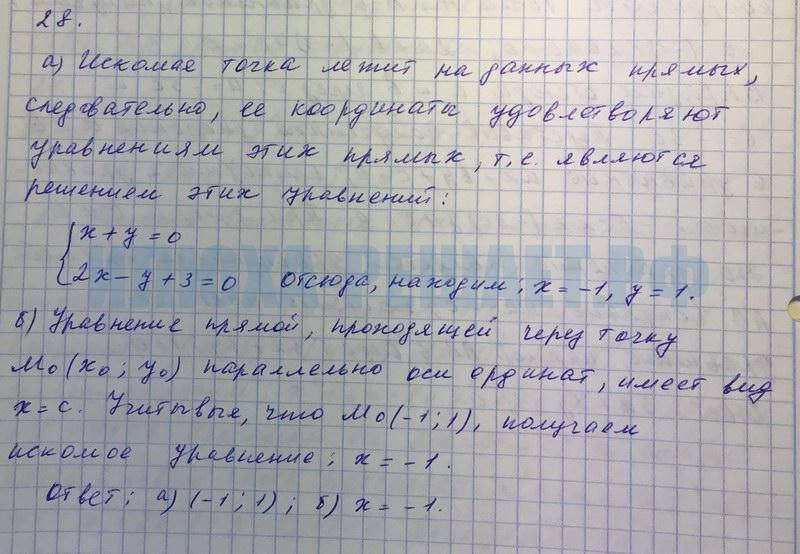 28.
а) Искомая точка лежит на данных прямых,
следовательно, ее координаты удовлетворяют
уравнениям этих прямых, т.е. являются
решением этих уравнений:
x + y = 0
2x - y + 3 = 0 Отсюда, находим: x = -1, y = 1.
б) Уравнение прямой, проходящей через точку
M₀(x₀; y₀) параллельно оси ординат, имеет вид
x = c. Учитывая, что M₀(-1; 1), получаем
искомое уравнение: x = -1.
Ответ: а) (-1; 1); б) x = -1.